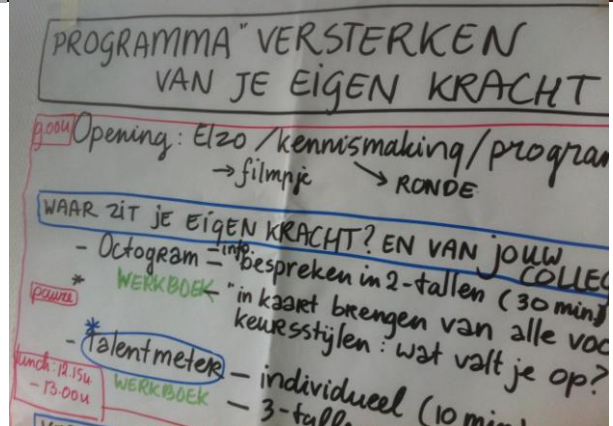 PROGRAMMA "VERSTERKEN
VAN JE EIGEN KRACHT
9.00u Opening: Elzo/kennismaking/program
→ filmpje → RONDE
WAAR ZIT JE EIGEN KRACHT? EN VAN JOUW
COLLEG
- Octogram = info bespreken in 2-tallen (30 min)
WERKBOEK - " in kaart brengen van alle voo
pauze *
keursstijlen: wat valt je op?
- * Talentmeter - individueel (10 min)
lunch: 12.15u
- 13.00u
WERKBOEK - 3-talle